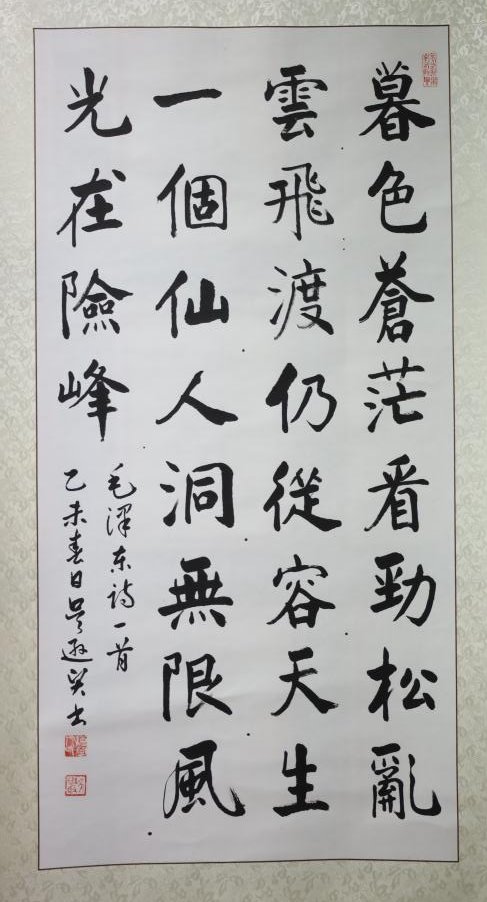 暮色蒼茫看勁松亂
雲飛渡仍從容天生
一個仙人洞無限風
光在險峰
毛澤东诗一首
乙未春日吴逊贤书